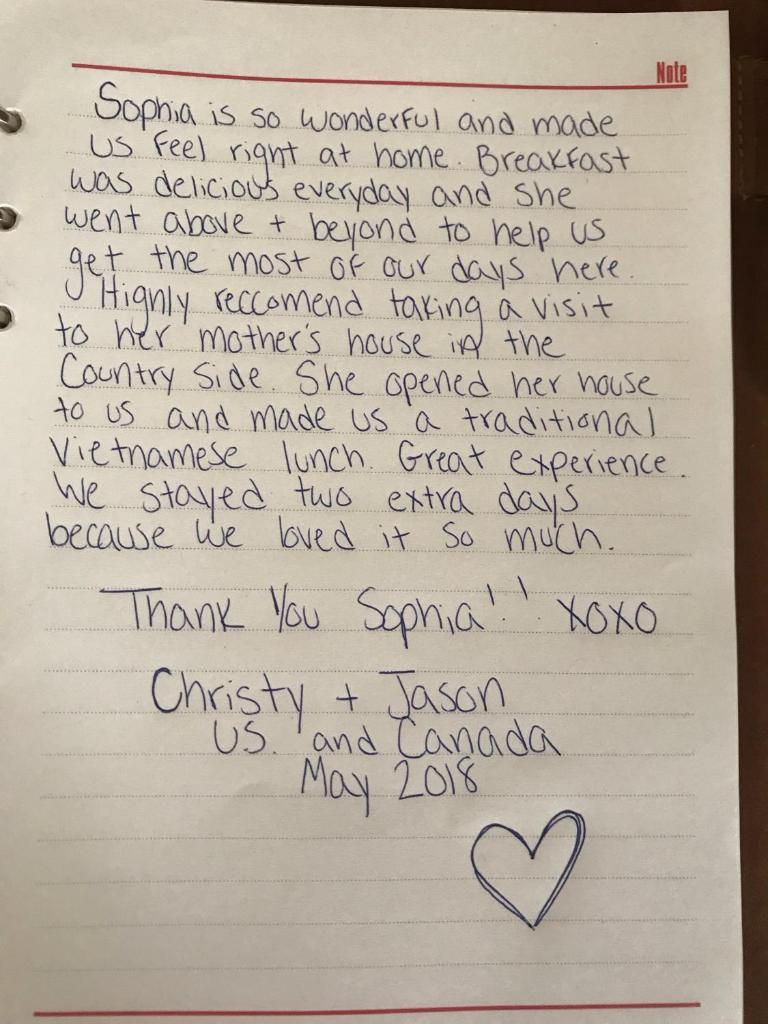 Note
Sophia is so wonderful and made
us feel right at home. Breakfast
was delicious everyday and she
went above + beyond to help us
get the most of our days here.
Highly reccomend taking a visit
to her mother's house in the
Country Side. She opened her house
to us and made us a traditional
Vietnamese lunch. Great experience.
We stayed two extra days
because we loved it so much.
Thank You Sophia!! XOXO
Christy + Jason
US. and Canada
May 2018